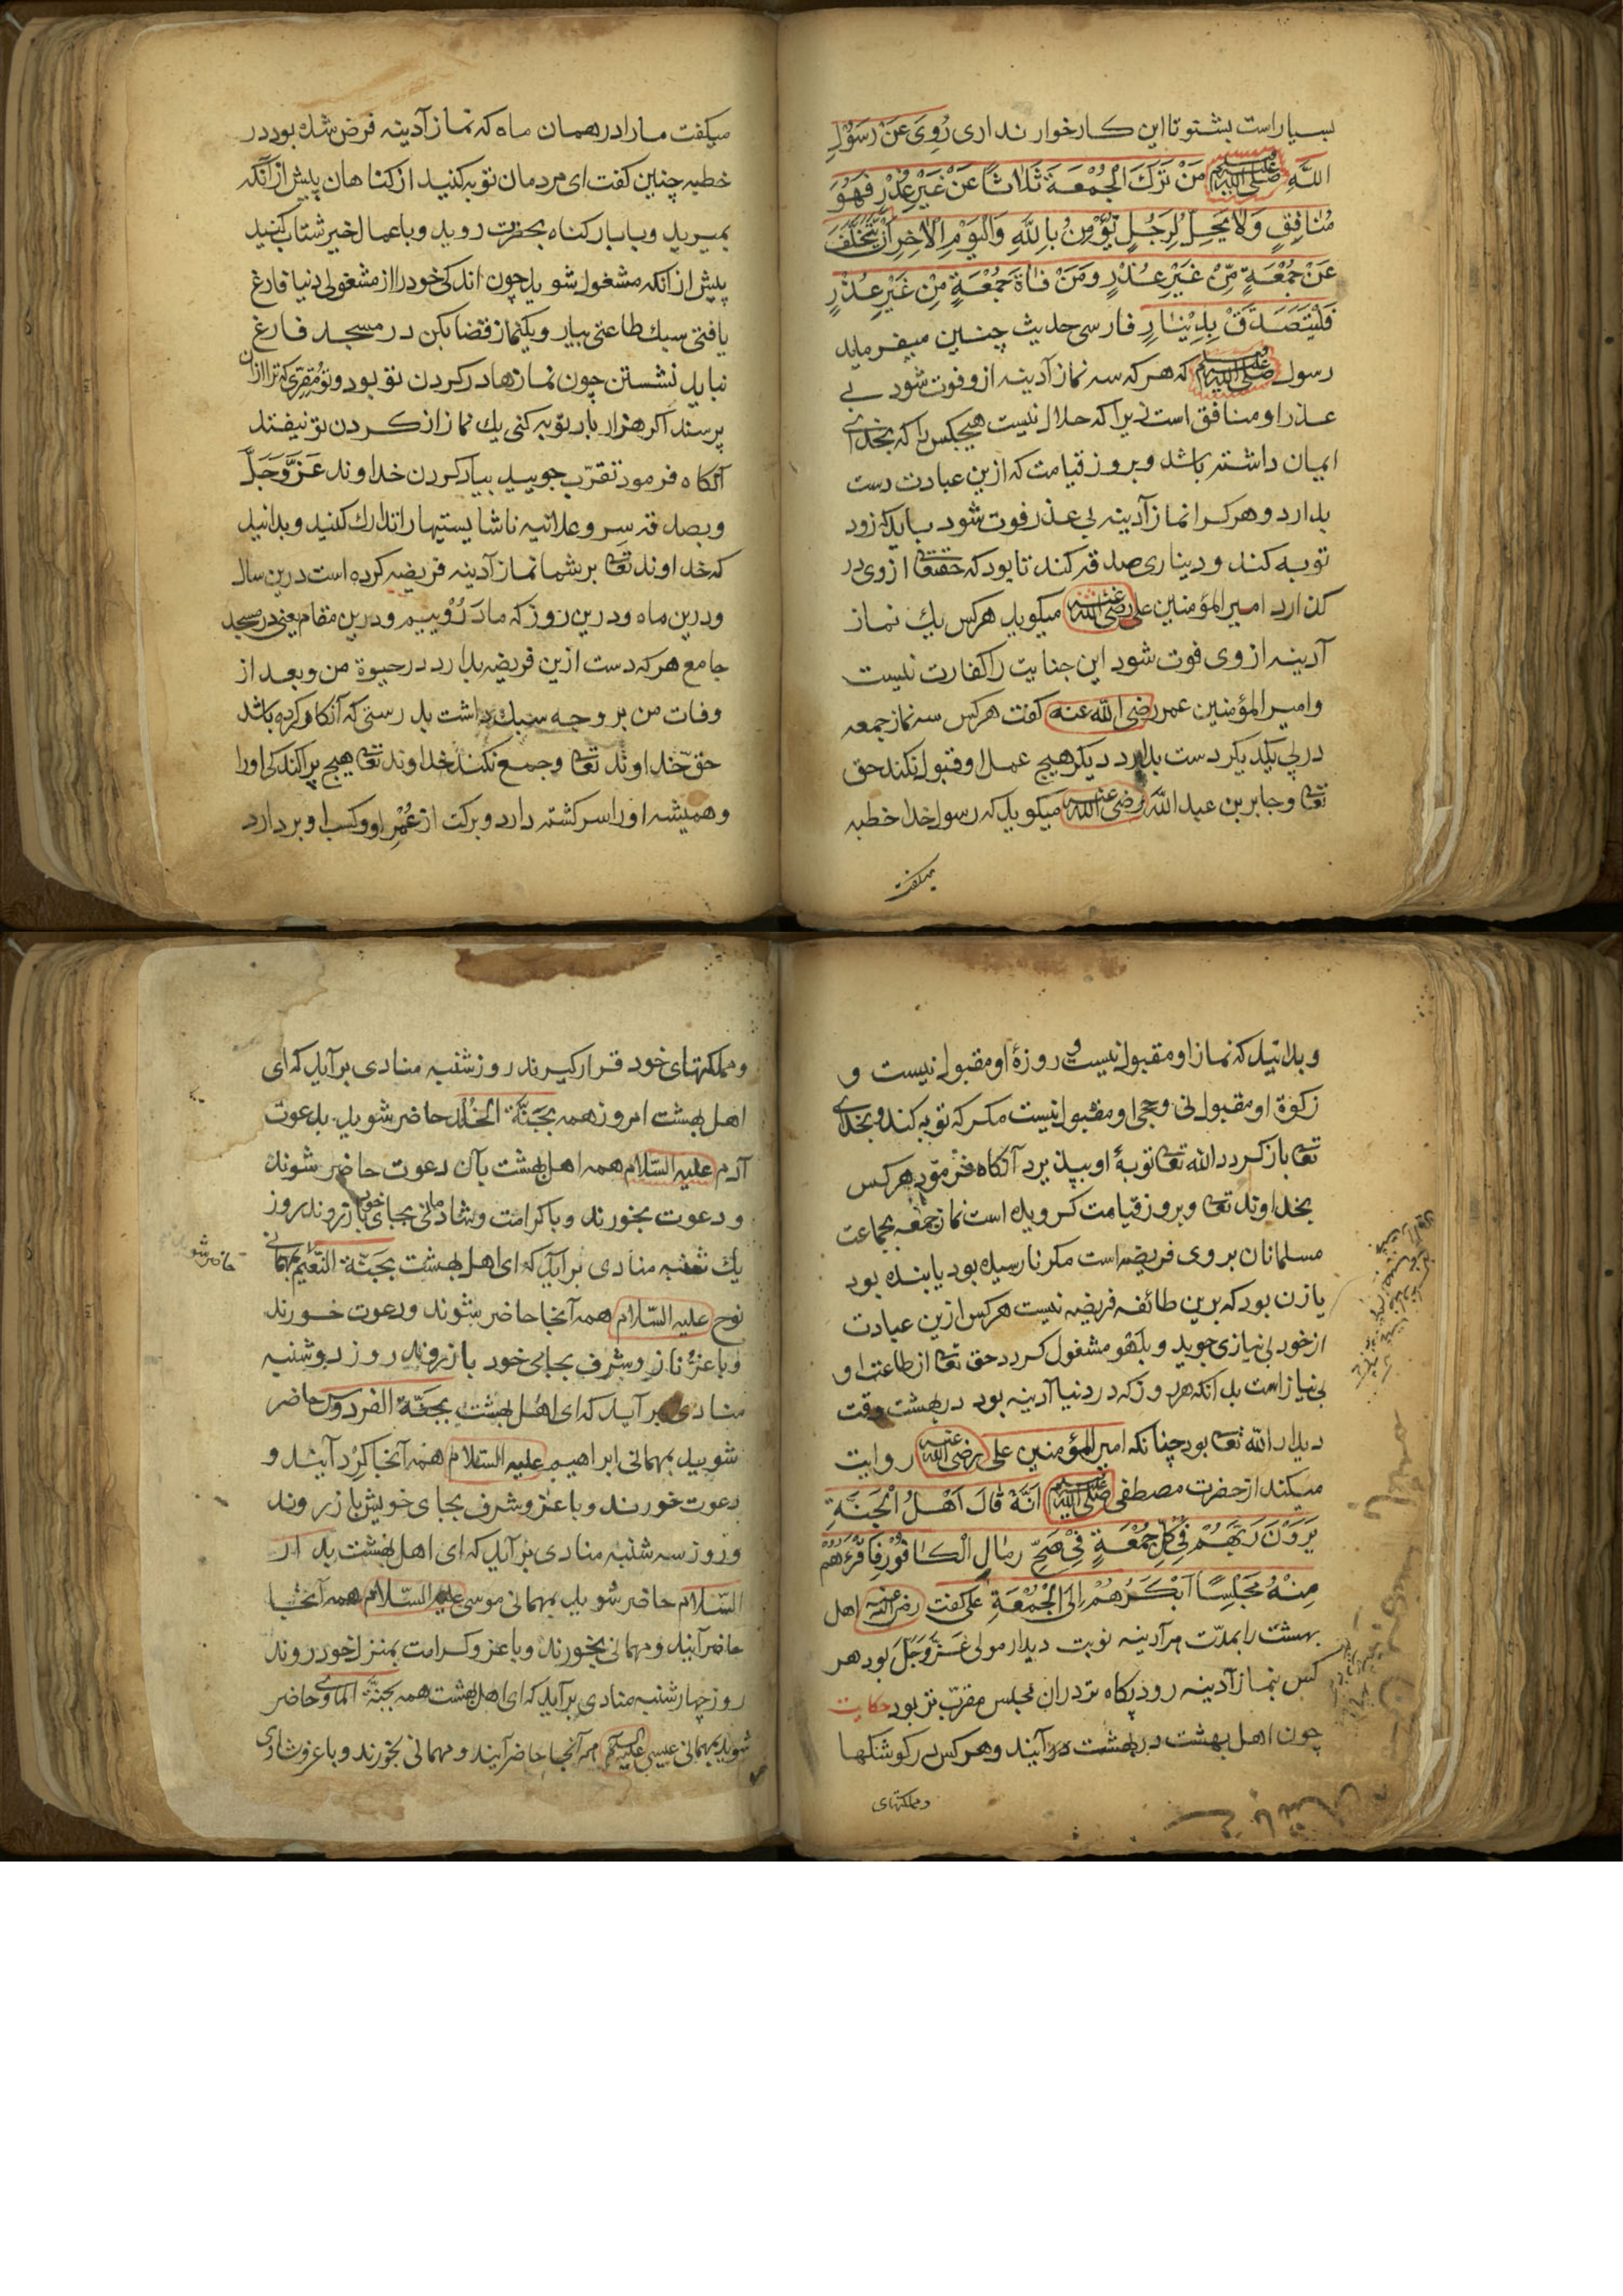 بسیار است بشنو تا این کار خوار نداری رُوِیَ عَنْ رَسُوْلِ
اللَّهِ صلی الله علیه وسلم مَنْ تَرَكَ الْجُمُعَةَ ثَلَاثًا عَنْ غَيْرِ عُذْرٍ فَهُوَ
مُنَافِقٍ وَلَا يَحِلُّ لِرَجُلٍ تُؤْمِنُ بِاللَّهِ وَالْيَوْمِ الْاٰخِرِ اَنْ يَّتَخَلَّفَ
عَنْ جُمُعَةٍ مِّنْ غَيْرِ عُذْرٍ وَمَنْ فَاةَ جُمُعَةٍ مِّنْ غَيْرِ عُذْرٍ
فَلْيَتَصَدَّقْ بِدِيْنَارٍ فارسی حدیث چنین میفرماید
رسول صلی الله علیه وسلم که هر که سه نماز آدینه از و فوت شود بے
عذر او منافق است زیرا که حلال نیست هیچکس را که بخدای
ایمان داشته باشد و بروز قیامت که ازین عبادت دست
بدارد و هر کرا نماز آدینه بی عذر فوت شود باید که زود
توبه کند و دیناری صدقه کند تا بود که حقتعا از وی در
کذارد امیر المؤمنین علی رضی الله عنه میکوید هرکس یك نماز
آدینه از وی فوت شود این جنایت را کفارت نیست
و امیر المؤمنین عمر رضی الله عنه کفت هرکس سه نماز جمعه
در پی یکدیکر دست بدارد دیکر هیچ عمل او قبول نکند حق
تعا و جابر بن عبد الله رضی الله عنه میکوید که رسول خدا خطبه
میکفت
میکفت مارا در همان ماه که نماز آدینه فرض شده بود در
خطبه چنین کفت ای مردمان توبه کنید از کناهان پیش از آنکه
بمیرید و با بار کناه بحضرت روید و باعمال خیر شتاب کنید
پیش از انکه مشغول شوید چون اندکی خود را از مشغولی دنیا فارغ
یافتی سبك طاعتی بیار و یکنماز قضا بکن در مسجد فارغ
نباید نشستن چون نمازها در کردن تو بود و تو مُقِرّی که ترا ازان
پرسند اکر هزار بار توبه کنی یك نماز از کردن تو نیفتد
آنکاه فرمود تقرّب جویید بیاد کردن خداوند عَزَّوَجَلَّ
و بصدقه سِر و علانیه ناشایستیها را تدارك کنید و بدانید
که خداوند تعا بر شما نماز آدینه فریضه کرده است درین سال
و درین ماه و درین روز که ما دَرُوییم و درین مقام یعنی در مسجد
جامع هر که دست ازین فریضه بدارد در حیوة من و بعد از
وفات من بر وجه سبك داشت بدرستی که آنکار کرده باشد
حق خداوند تعا و جمع نکند خداوند تعا هیچ پراکندکی اورا
و همیشه اورا سرکشته دارد و برکت از عُمْرِ او و کسب او بردارد
و بدانید که نماز او مقبول نیست و روزهٔ او مقبول نیست و
زکوة او مقبول نی و حج او مقبول نیست مکر که توبه کند و بخدای
تعا باز کردد الله تعا توبهٔ او بپذیرد آنکاه فرمود هر کس
بخداوند تعا و بروز قیامت کرویده است نماز جمعه بجماعت
مسلمانان بر وی فریضه است مکر نارسیده بود یا بنده بود
یا زن بود که برین طائفه فریضه نیست هرکس ازین عبادت
از خود بی نیازی جوید و بلهو مشغول کردد حق تعا از طاعت او
بی نیاز است بدانکه هر روز که در دنیا آدینه بود در بهشت وقت
دیدار الله تعا بود چنانکه امیر المؤمنین علی رضی الله عنه روایت
میکند از حضرت مصطفی صلی الله علیه وسلم اَنَّهُ قَالَ اَهْلُ الْجَنَّةِ
يَرَوْنَ رَبَّهُمْ فِیْ كُلِّ جُمُعَةٍ فِیْ رِمَالِ الْكَافُوْرِ فَاَقْرَبُهُمْ
مِنْهُ مَجْلِسًا اَبْكَرُهُمْ اِلَى الْجُمُعَةِ علی کفت رضی الله عنه اهل
بهشت را بمدّت هر آدینه نوبت دیدار مولی عَزَّوَجَلَّ بود هر
کس بنماز آدینه رود پکاه تر دران مجلس مقرّب تر بود حکایت
چون اهل بهشت در بهشت در آیند و هر کس در کوشکها
و مملکتهای
و مملکتهای خود قرار کیرند روز شنبه منادی برآید که ای
اهل بهشت امروز همه بجَنَّةُ الْخُلْد حاضر شوید بدعوت
آدم علیه السّلام همه اهل بهشت بآن دعوت حاضر شوند
و دعوت بخورند و با کرامت و شادمانی بجای خود باز روند روز
یك شنبه منادی برآید که ای اهل بهشت بجَنَّة النَّعِيْم بمهمانی
حاضر شوید
نوح علیه السّلام همه آنجا حاضر شوند و دعوت خورند
و با عزّ و ناز و شرف بجای خود باز روند روز دوشنبه
منادی برآید که ای اهل بهشت بجَنَّة الفردوس حاضر
شوید بمهمانی ابراهیم علیه السّلام همه آنجا کِرْد آیند و
دعوت خورند و با عز و شرف بجای خویش باز روند
و روز سه شنبه منادی برآید که ای اهل بهشت بدار
السّلام حاضر شوید بمهمانی موسی علیه السّلام همه آنجا
حاضر آیند و مهمانی بخورند و با عز و کرامت بمنزل خود روند
روز چهار شنبه منادی برآید که ای اهل بهشت همه بجَنَّةُ الماوی حاضر
شوید بمهمانی عیسی علیه السلام همه آنجا حاضر آیند و مهمانی بخورند و با عز و شادی